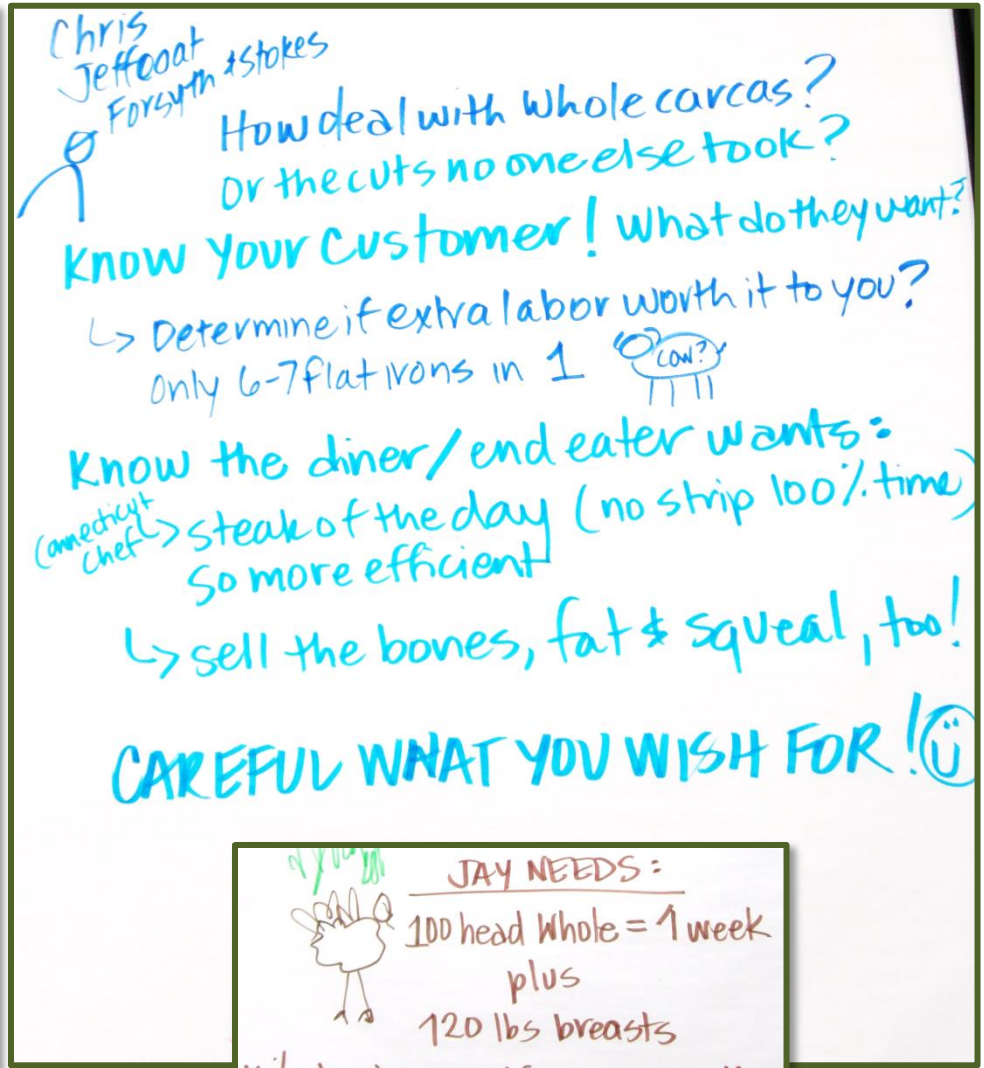 Chris
Jeffcoat
Forsyth & Stokes
How deal with whole carcas?
or the cuts no one else took?
Know Your Customer! What do they want?
↳ Determine if extra labor worth it to you?
only 6-7 flat irons in 1
cow?
Know the diner/end eater wants:
Connecticut
chef
↳ steak of the day (no strip 100% time)
so more efficient
↳ sell the bones, fat & squeal, too!
CAREFUL WHAT YOU WISH FOR!
JAY NEEDS:
100 head Whole = 1 week
plus
120 lbs breasts